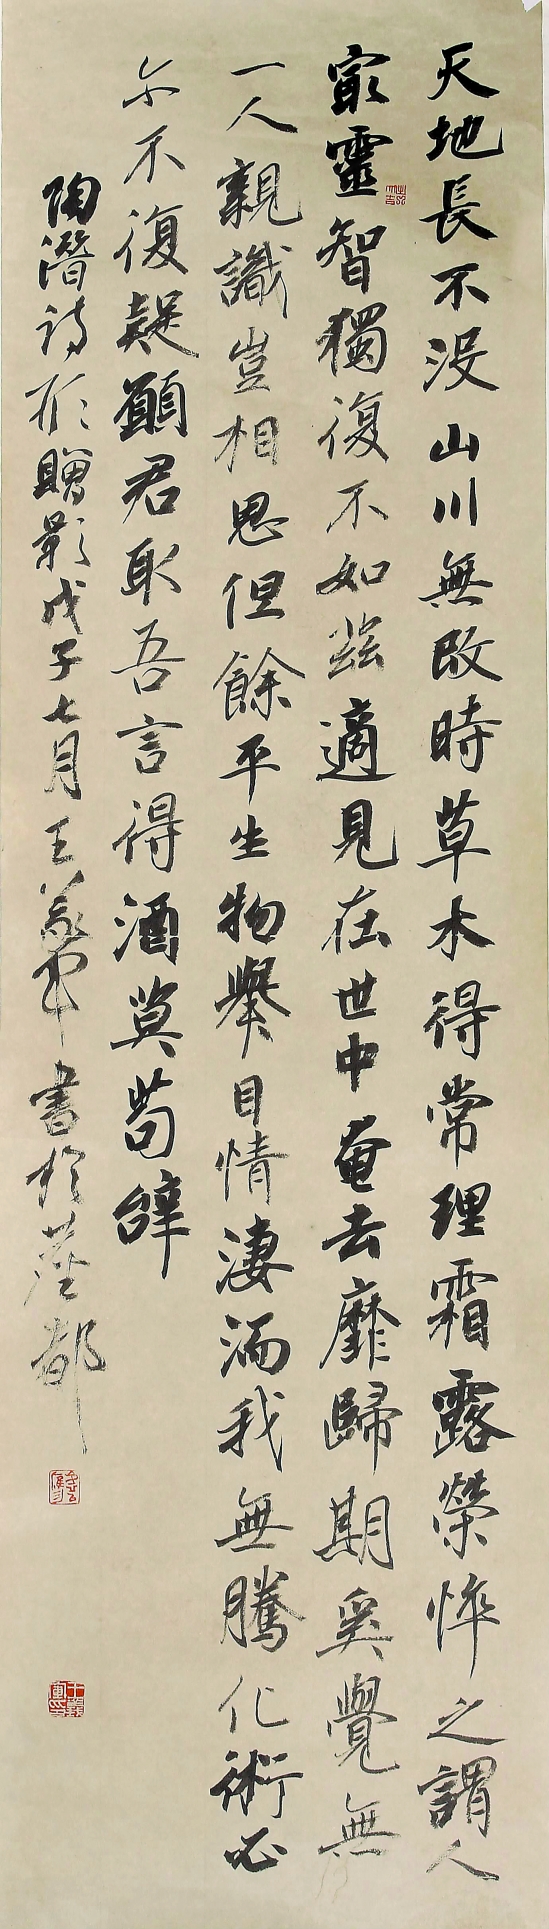 天地長不沒山川無改時草木得常理霜露榮悴之謂人
最靈智獨復不如茲適見在世中奄去靡歸期奚覺無
一人親識豈相思但餘平生物舉目情悽洏我無騰化術必
尒不復疑願君取吾言得酒莫苟辭
陶潛詩形贈影戊子七月王義軍書於燕都